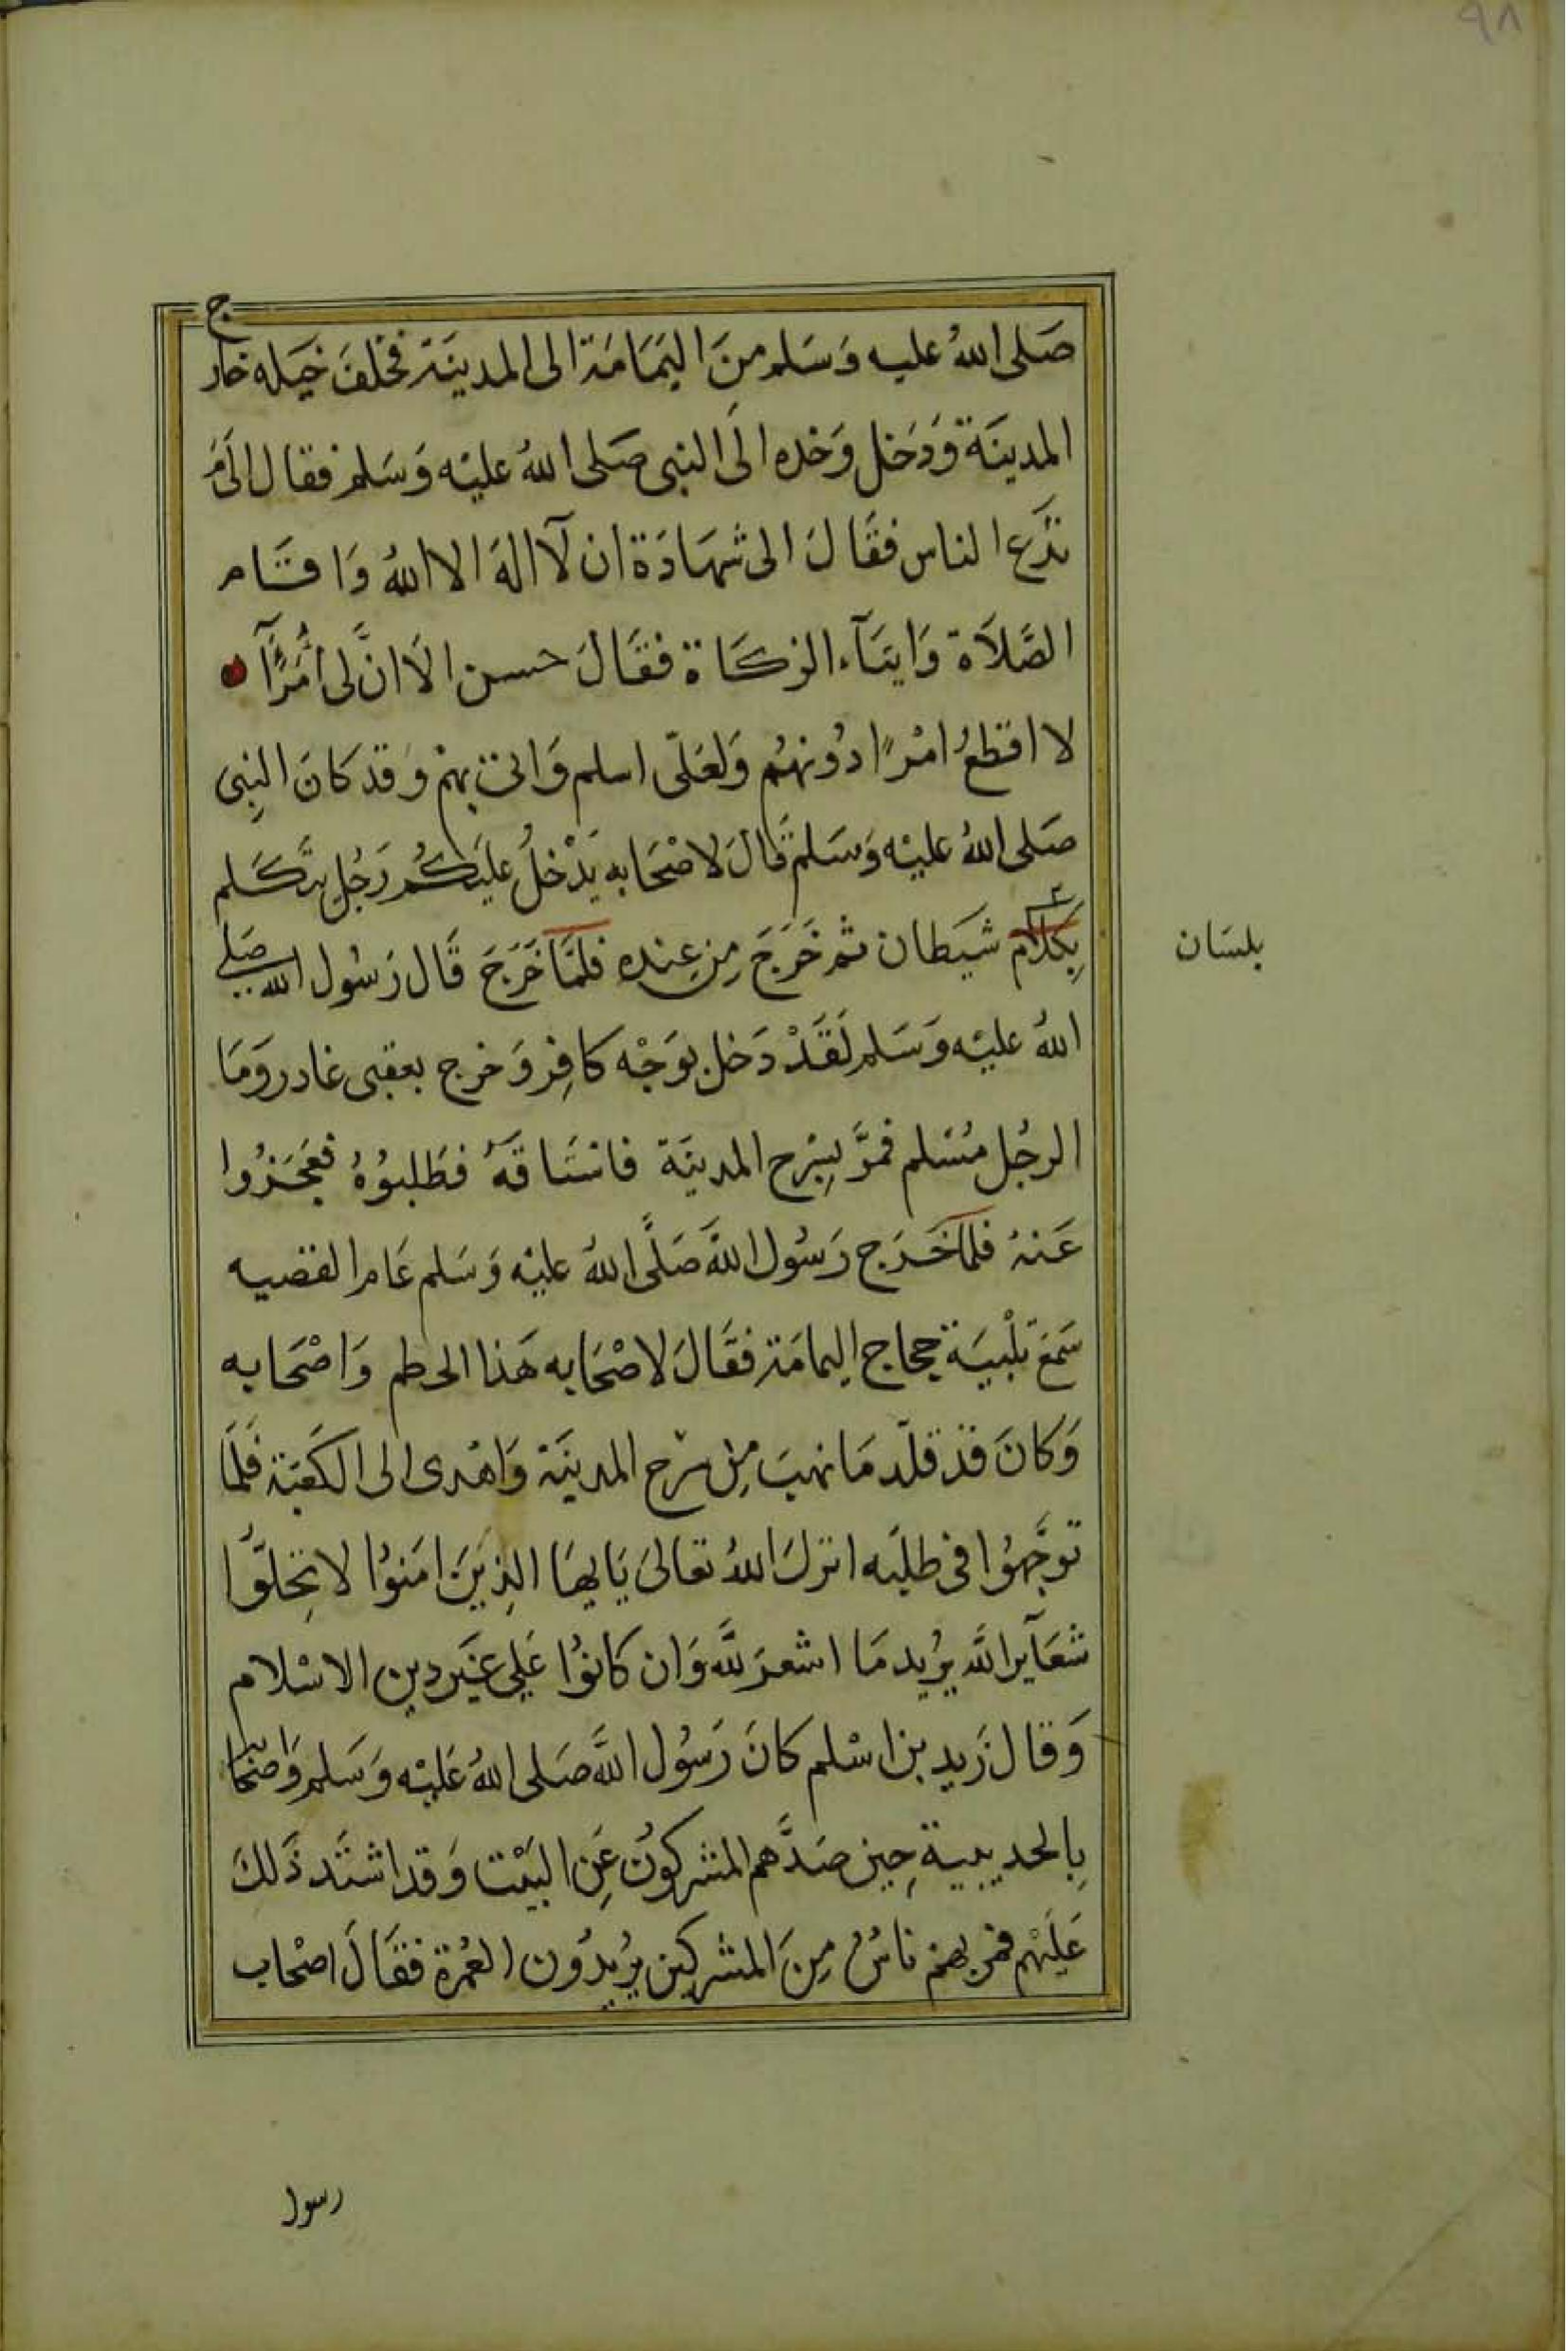 ٩٨
صَلى اللهُ عليه وَسَلم منَ اليَمَامَة الى المدينَة فخلفَ خَيله خارج
المدينَة وَدَخل وَحْده الَى النبى صَلى اللهُ عليْه وَسَلم فقال الىَ مَ
تدَع الناس فقَالَ الى شهَادَة ان لآ الهَ الا اللهُ وَاقَام
الصَّلاَة وَايتَآء الزكَاة فقَالَ حسن الاَ انَّ لى اُمَرَآَ
لا اقطعُ امْرًا دُونهُم وَلعَلّى اسلم وَاتى بهمْ وَقد كانَ النبِى
صَلى اللهُ عليْه وَسَلم قَالَ لاصْحَابه يَدْخلُ عليَكُم رَجُل يتَكَلم
بِكلاَم شيَطان ثم خَرَجَ مِن عِنده فلمَّا خَرَجَ قَال رَسُول الله صَلى
اللهُ عليْه وَسَلم لَقَدْ دَخل بوَجْه كافِر وَخرج بعقبى غادر وَمَا
الرجُل مُسْلم فمَرَّ بِسَرْح المدينَة فاستَاقهَُ فطَلبوُهُ فعَجَزُوا
عَنهُ فلمآ خَرَج رَسُول اللهَّ صَلَّى اللهُ عليْه وَسَلم عَام القضيه
سَمَعَ تَلْبيَة حجاج اليمامَة فقَالَ لاصْحَابه هَذا الحطم وَاصْحَابه
وَكانَ قدْ قلّد مَا نهبَ مِن سَرح المدينَة وَاهْدى الى الكَعبَة فلمَّا
توَجَّهوُا فى طلبَه انزلَ اللهُ تعَالىَ يَايهَا الذِينَ امَنوُا لا تحِلوُّا
شعَآير اللهَّ يرُيد مَا اشعرَ للهَّ وَان كانوُا عَلى غيَر دين الاسْلام
وَقال زَيد بن اسْلم كانَ رَسُول اللهَّ صَلى اللهُ عَليْه وَسَلم وَاصْحابه
بِالحديبية حِين صَدَّهم المشركوُن عَنِ البَيْت وَقد اشتَد ذَلكَ
عَليَهْم فمر بهمْ ناسُ مِنَ المشركين يرُيدُون العُمرَة فقَالَ اصْحاب
بلسَان
رسول